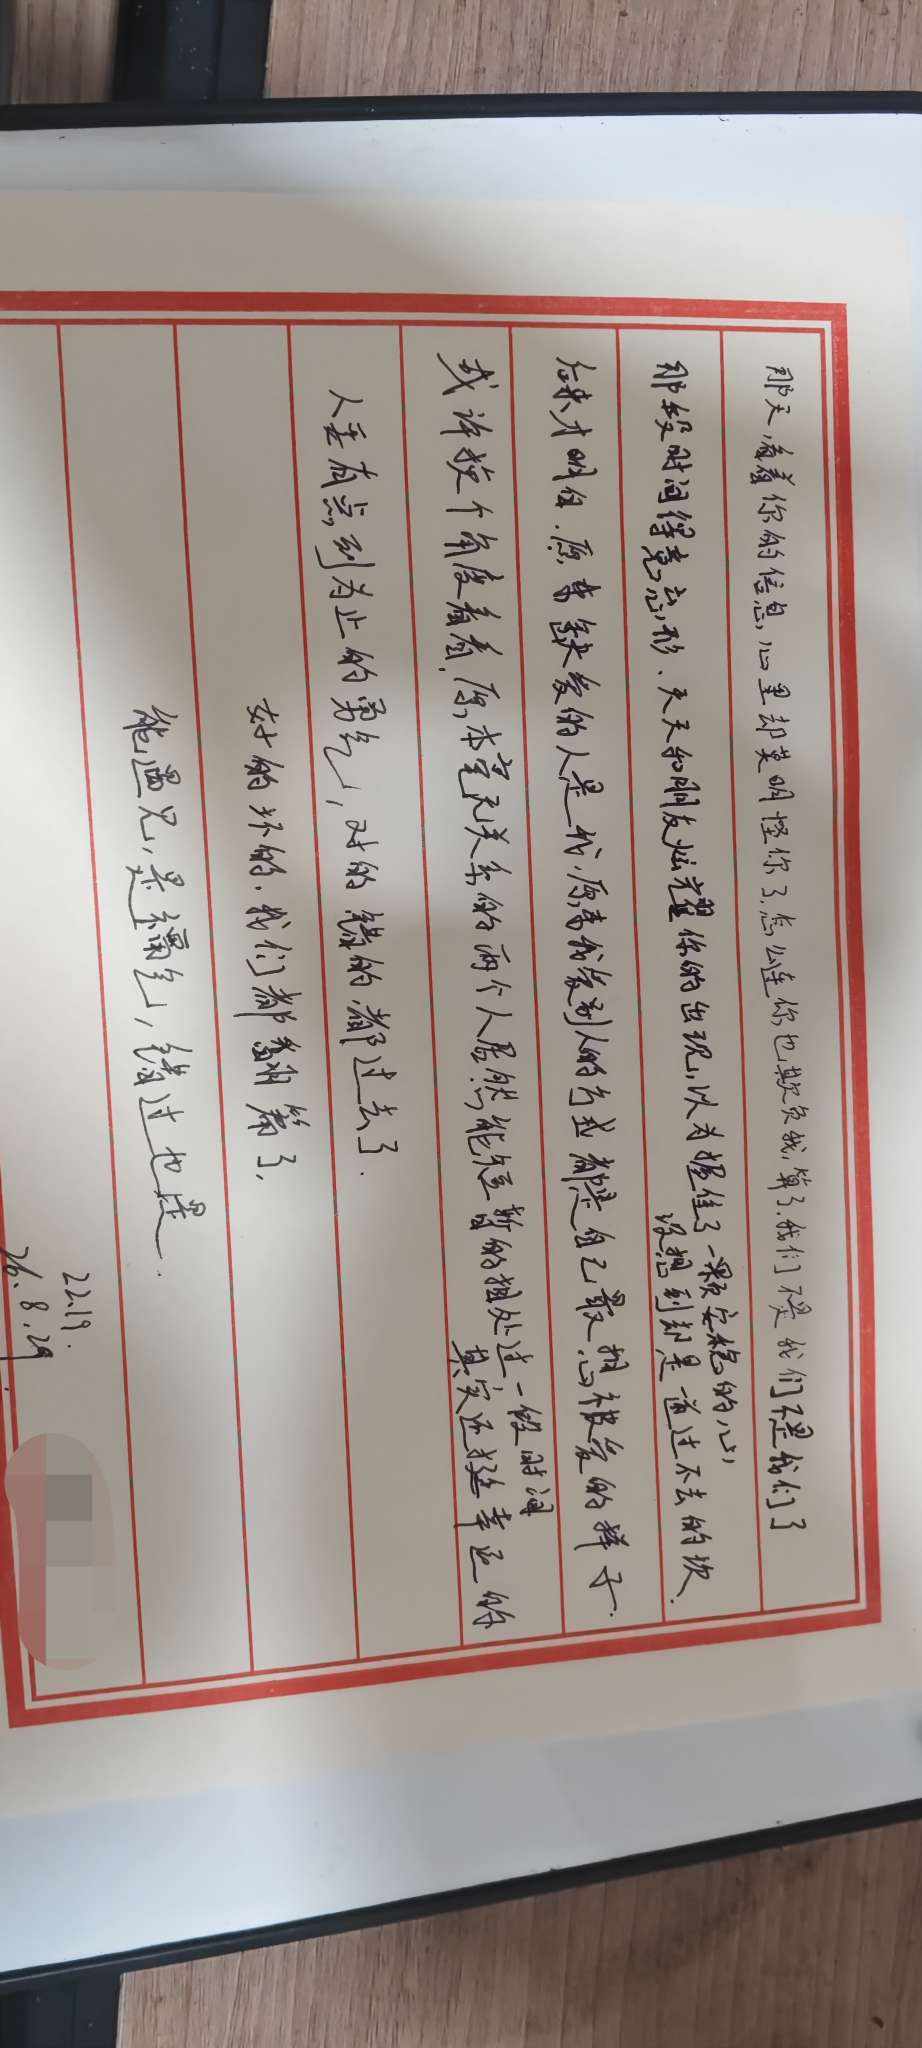 那天，看着你的信息，心里却莫明怪你了，怎么连你也欺负我，算了，我们不是我们不是我们了
那段时间得意忘形、天天和朋友炫耀你的出现，以为握住了一颗安稳的心，
没想到却是一道过不去的坎.
后来才明白.原来缺爱的人是我、原来我爱别人的方式都是自己最想被爱的样子.
或许换个角度看看，原本毫无关系的两个人居然能短暂的相处过一段时间
其实还挺幸运的
人要有点到为止的勇气，对的错的，都过去了.
好的坏的.我们都翻篇了，
能遇见，是福气，错过也是.
22.19.
26.8.29.